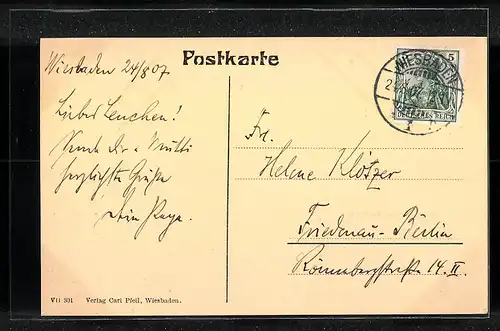 Postkarte
Wiesbaden 24/8 07
Liebes Lenchen!
Sende dir u. Mutti
herzlichste Grüße
Dein Papa.
Frl.
Helene Klötzer
Friedenau-Berlin
Rönnebergstraße 14. II.
WIESBADEN
5
DEUTSCHES REICH
VII 301 Verlag Carl Pfeil, Wiesbaden.